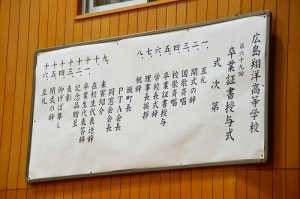 広島翔洋高等学校
第六十九回
卒業証書授与式
式次第
一、互礼
二、開式の辞
三、国歌斉唱
四、校歌斉唱
五、卒業証書授与
六、学校長式辞
七、理事長挨拶
八、祝辞
町長
PTA会長
同窓会会長
九、来賓紹介
十、在校生代表送辞
十一、卒業生代表答辞
十二、記念品贈呈
十三、表彰
十四、仰げば尊し
十五、閉式の辞
十六、互礼